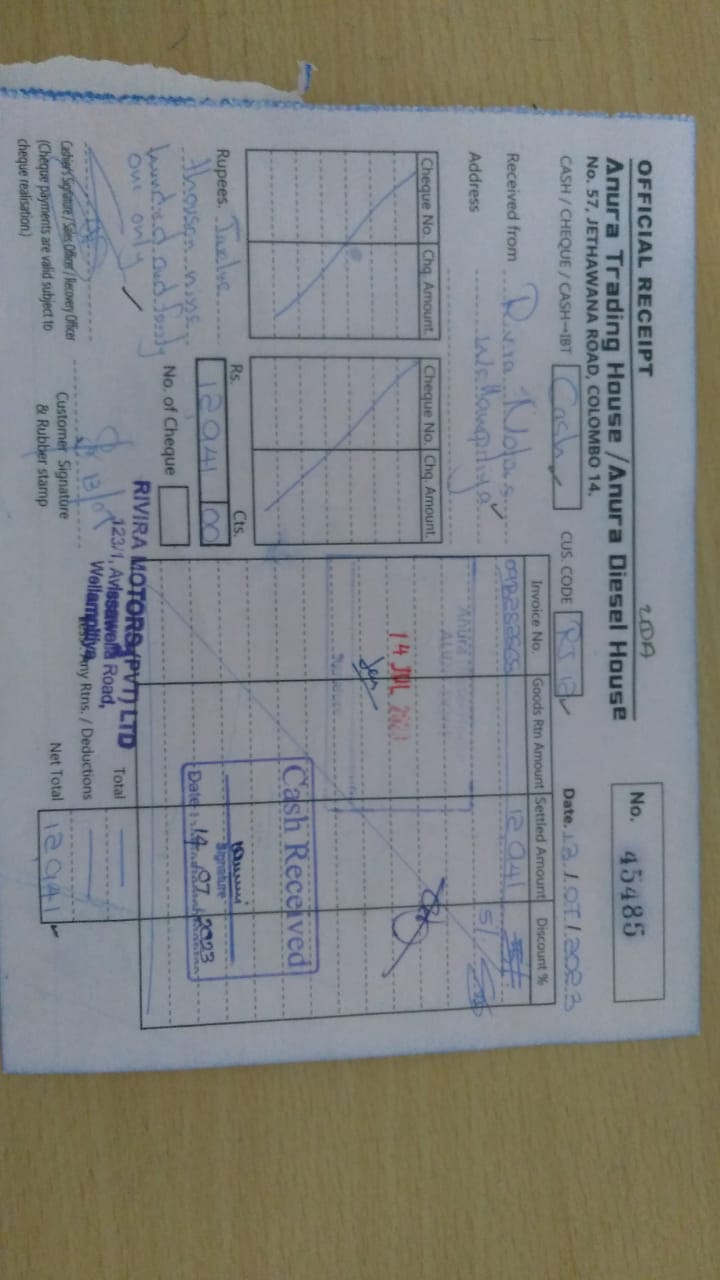 OFFICIAL RECEIPT
Anura Trading House / Anura Diesel House
No. 57, JETHAWANA ROAD, COLOMBO 14.
No. 45485
CASH / CHEQUE / CASH-IBT Cash
CUS. CODE
Date. 13/07/2023
Received from
Address
Cheque No. Chq. Amount. Cheque No. Chq. Amount.
Invoice No. Goods Rtn Amount Settled Amount Discount %
12,941
14 JUL
Cash Received
Signature
Date : 14 07 2023
Rupees. Twelve
thousan nine
hundred and forty
one only
Rs. Cts.
12941 00
No. of Cheque
Cashier's Signature / Sales Officer / Recovery Officer
(Cheque payments are valid subject to
cheque realisation.)
Customer Signature
& Rubber stamp
RIVIRA MOTORS (PVT) LTD
123/1, Avissawella Road,
Wellampitiya
Total
Any Rtns. / Deductions
Net Total 12,941